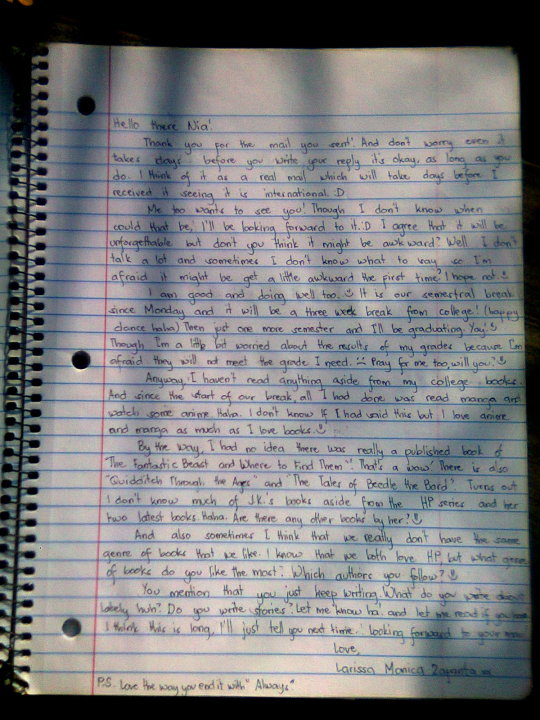 Hello there Nia!
Thank you for the mail you sent! And don't worry even it
takes days before you write your reply it's okay, as long as you
do. I think of it as a real mail which will take days before I
received it seeing it is international. :D
Me too wants to see you! Though I don't know when
could that be, I'll be looking forward to it. :D I agree that it will be
unforgettable but don't you think it might be awkward? Well I don't
talk a lot and sometimes I don't know what to say so I'm
afraid it might be get a little awkward the first time? I hope not.
I am good and doing well too. It is our semestral break
since Monday and it will be a three week break from college! (happy
dance haha) Then just one more semester and I'll be graduating. Yay!
Though I'm a little bit worried about the results of my grades because I'm
afraid they will not meet the grade I need. Pray for me too, will you?
Anyway, I haven't read anything aside from my college books.
And since the start of our break, all I had done was read manga and
watch some anime. Haha. I don't know if I had said this but I love anime
and manga as much as I love books.
By the way, I had no idea there was really a published book of
"The Fantastic Beast and Where to Find Them"! That's a wow! There is also
"Quidditch Through the Ages" and "The Tales of Beedle the Bard" Turns out
I don't know much of J.K.'s books aside from the HP series and her
two latest books. Haha. Are there any other books by her?
And also sometimes I think that we really don't have the same
genre of books that we like. I know that we both love HP, but what genre
of books do you like the most? Which authors you follow?
You mention that you just keep writing. What do you write about
lately huh? Do you write stories? Let me know ha! and let me read if you
I think this is long, I'll just tell you next time. Looking forward to your
Love,
Larissa Monica
P.S. Love the way you end it with "Always."